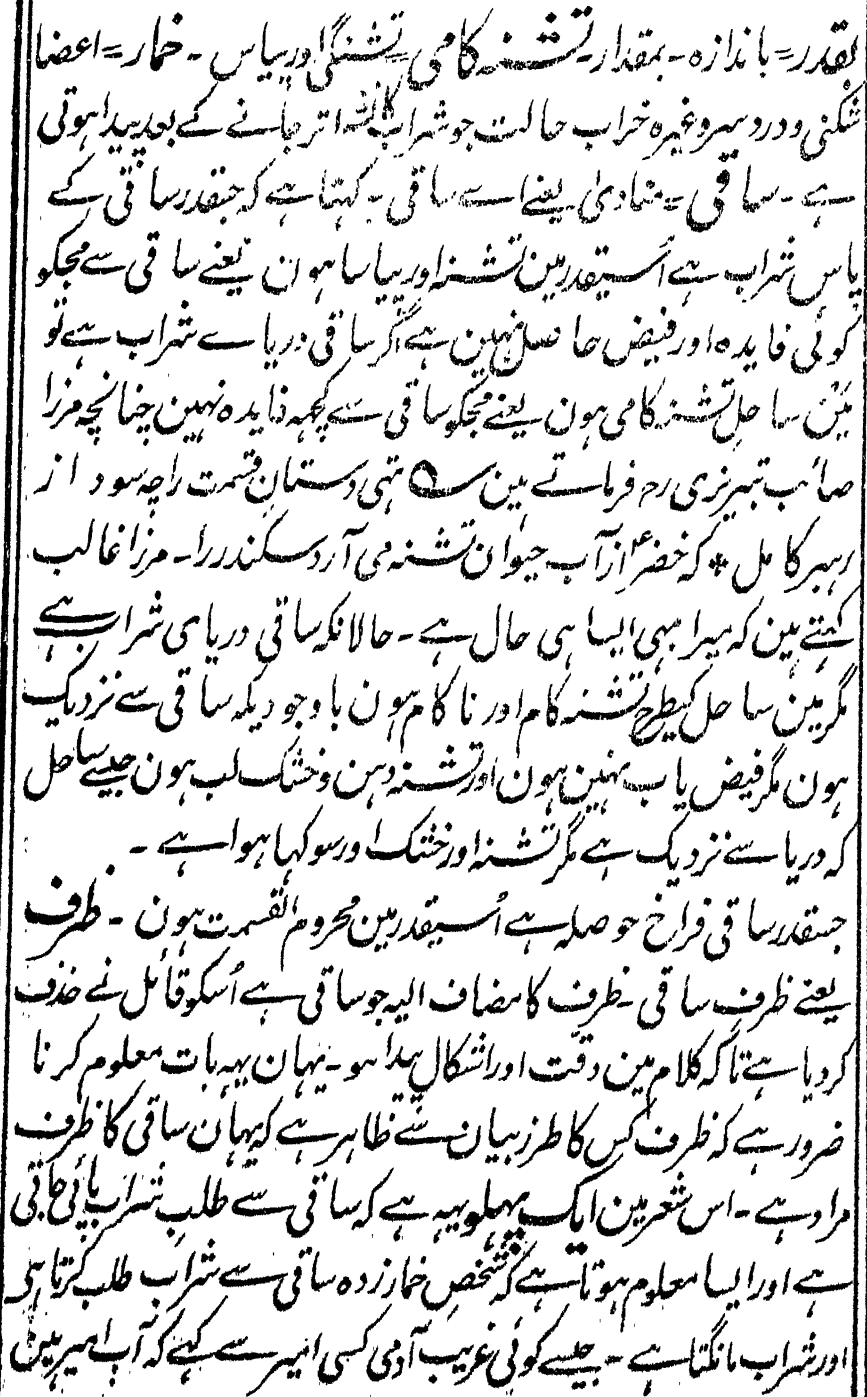 بقدر = باندازہ ۔ بمقدار ۔ تشنہ کامی = تشنگی اور پیاس ۔ خمار = اعضا
شکنی و درد سر وغیرہ خراب حالت جو شراب کا نشہ اتر جانے کے بعد پیدا ہوتی
ہے ۔ ساقی = منادیٰ یعنے اے ساقی ۔ کہتا ہے کہ جسقدر ساقی کے
پاس شراب ہے اُسیقدر مین تشنہ اور پیاسا ہون یعنے ساقی سے مجکو
کوئی فایدہ اور فیض حاصل نہین ہے اگر ساقی دریاے شراب ہے تو
مَین ساحلِ تشنہ کامی ہون یعنے مجکو ساقی سے کچہہ فایدہ نہین چنانچہ مرزا
صائب تبریزی رح فرماتے ہین ؎ تہی دستانِ قسمت را چہ سود از
رہبرِ کامل * کہ خضرؑ از آب حیوان تشنہ می آرد سکندر را ۔ مرزا غالب
کہتے ہین کہ میرا بہی ایسا ہی حال ہے ۔ حالانکہ ساقی دریای شراب ہے
مگر مین ساحل کیطرح تشنہ کام اور ناکام ہون باوجودیکہ ساقی سے نزدیک
ہون مگر فیض یاب نہین ہون اور تشنہ دہن و خشک لب ہون جیسے ساحل
کہ دریا سے نزدیک ہے مگر تشنہ اور خشک اور سوکہا ہوا ہے ۔
جسقدر ساقی فراخ حوصلہ ہے اُسیقدر مین محروم القسمت ہون ۔ ظرف
یعنے ظرفِ ساقی ۔ ظرف کا مضاف الیہ جو ساقی ہے اُسکو قائل نے حذف
کر دیا ہے تاکہ کلام مین دقّت اور اشکال پیدا ہو ۔ یہان یہہ بات معلوم کرنا
ضرور ہے کہ ظرف کس کا طرز بیان سے ظاہر ہے کہ یہان ساقی کا ظرف
مراد ہے ۔ اس شعر مین ایک پہلو یہہ ہے کہ ساقی سے طلبِ شراب پائی جاتی
ہے اور ایسا معلوم ہوتا ہے کہ شخصِ خمار زدہ ساقی سے شراب طلب کرتا ہے
اور شراب مانگتا ہے ۔ جیسے کوئی غریب آدمی کسی امیر سے کہے کہ آپ امیر ہین